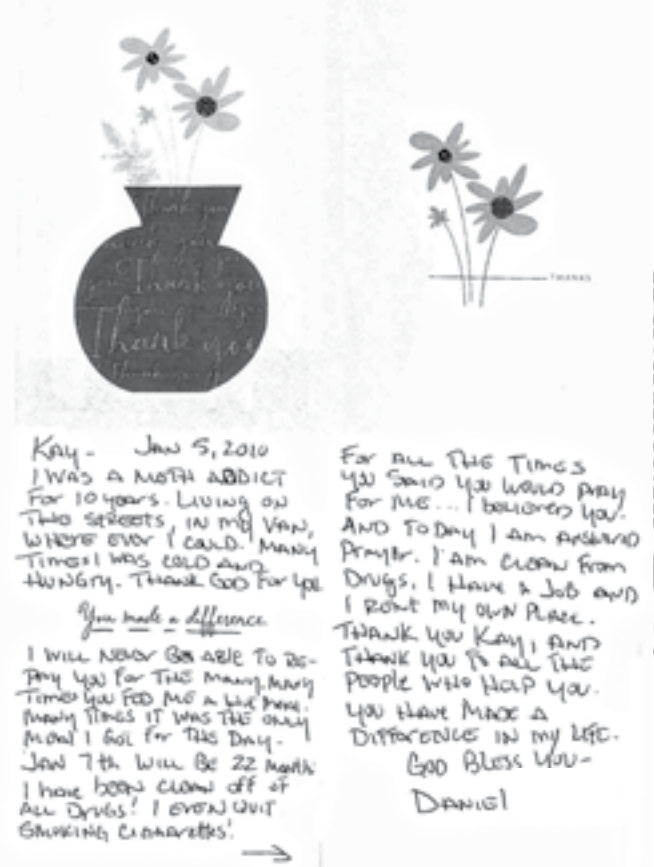 Thank you
Thank you
Thank you
THANKS
KAY- JAN 5, 2010
I WAS A METH ADDICT
FOR 10 years. LIVING ON
THE STREETS, IN MY VAN,
WHERE EVER I COULD. MANY
TIMES I WAS COLD AND
HUNGRY. THANK GOD FOR YOU
You made a difference
I WILL NEVER BE ABLE TO RE-
PAY YOU FOR THE MANY, MANY
TIMES YOU FED ME A hot meal.
MANY TIMES IT WAS THE ONLY
MEAL I GOT FOR THE DAY.
JAN 7th WILL BE 22 months
I have been CLEAN off of
ALL DRUGS! I EVEN QUIT
SMOKING CIGARETTES!
→
FOR ALL THE TIMES
YOU SAID YOU WOULD PRAY
FOR ME... I BELIEVED YOU.
AND TODAY I AM ANSWERED
PRAYER. I AM CLEAN FROM
DRUGS, I HAVE A JOB AND
I RENT MY OWN PLACE.
THANK YOU KAY, AND
THANK YOU TO ALL THE
PEOPLE WHO HELP YOU.
YOU HAVE MADE A
DIFFERENCE IN MY LIFE.
GOD BLESS YOU-
DANIEL